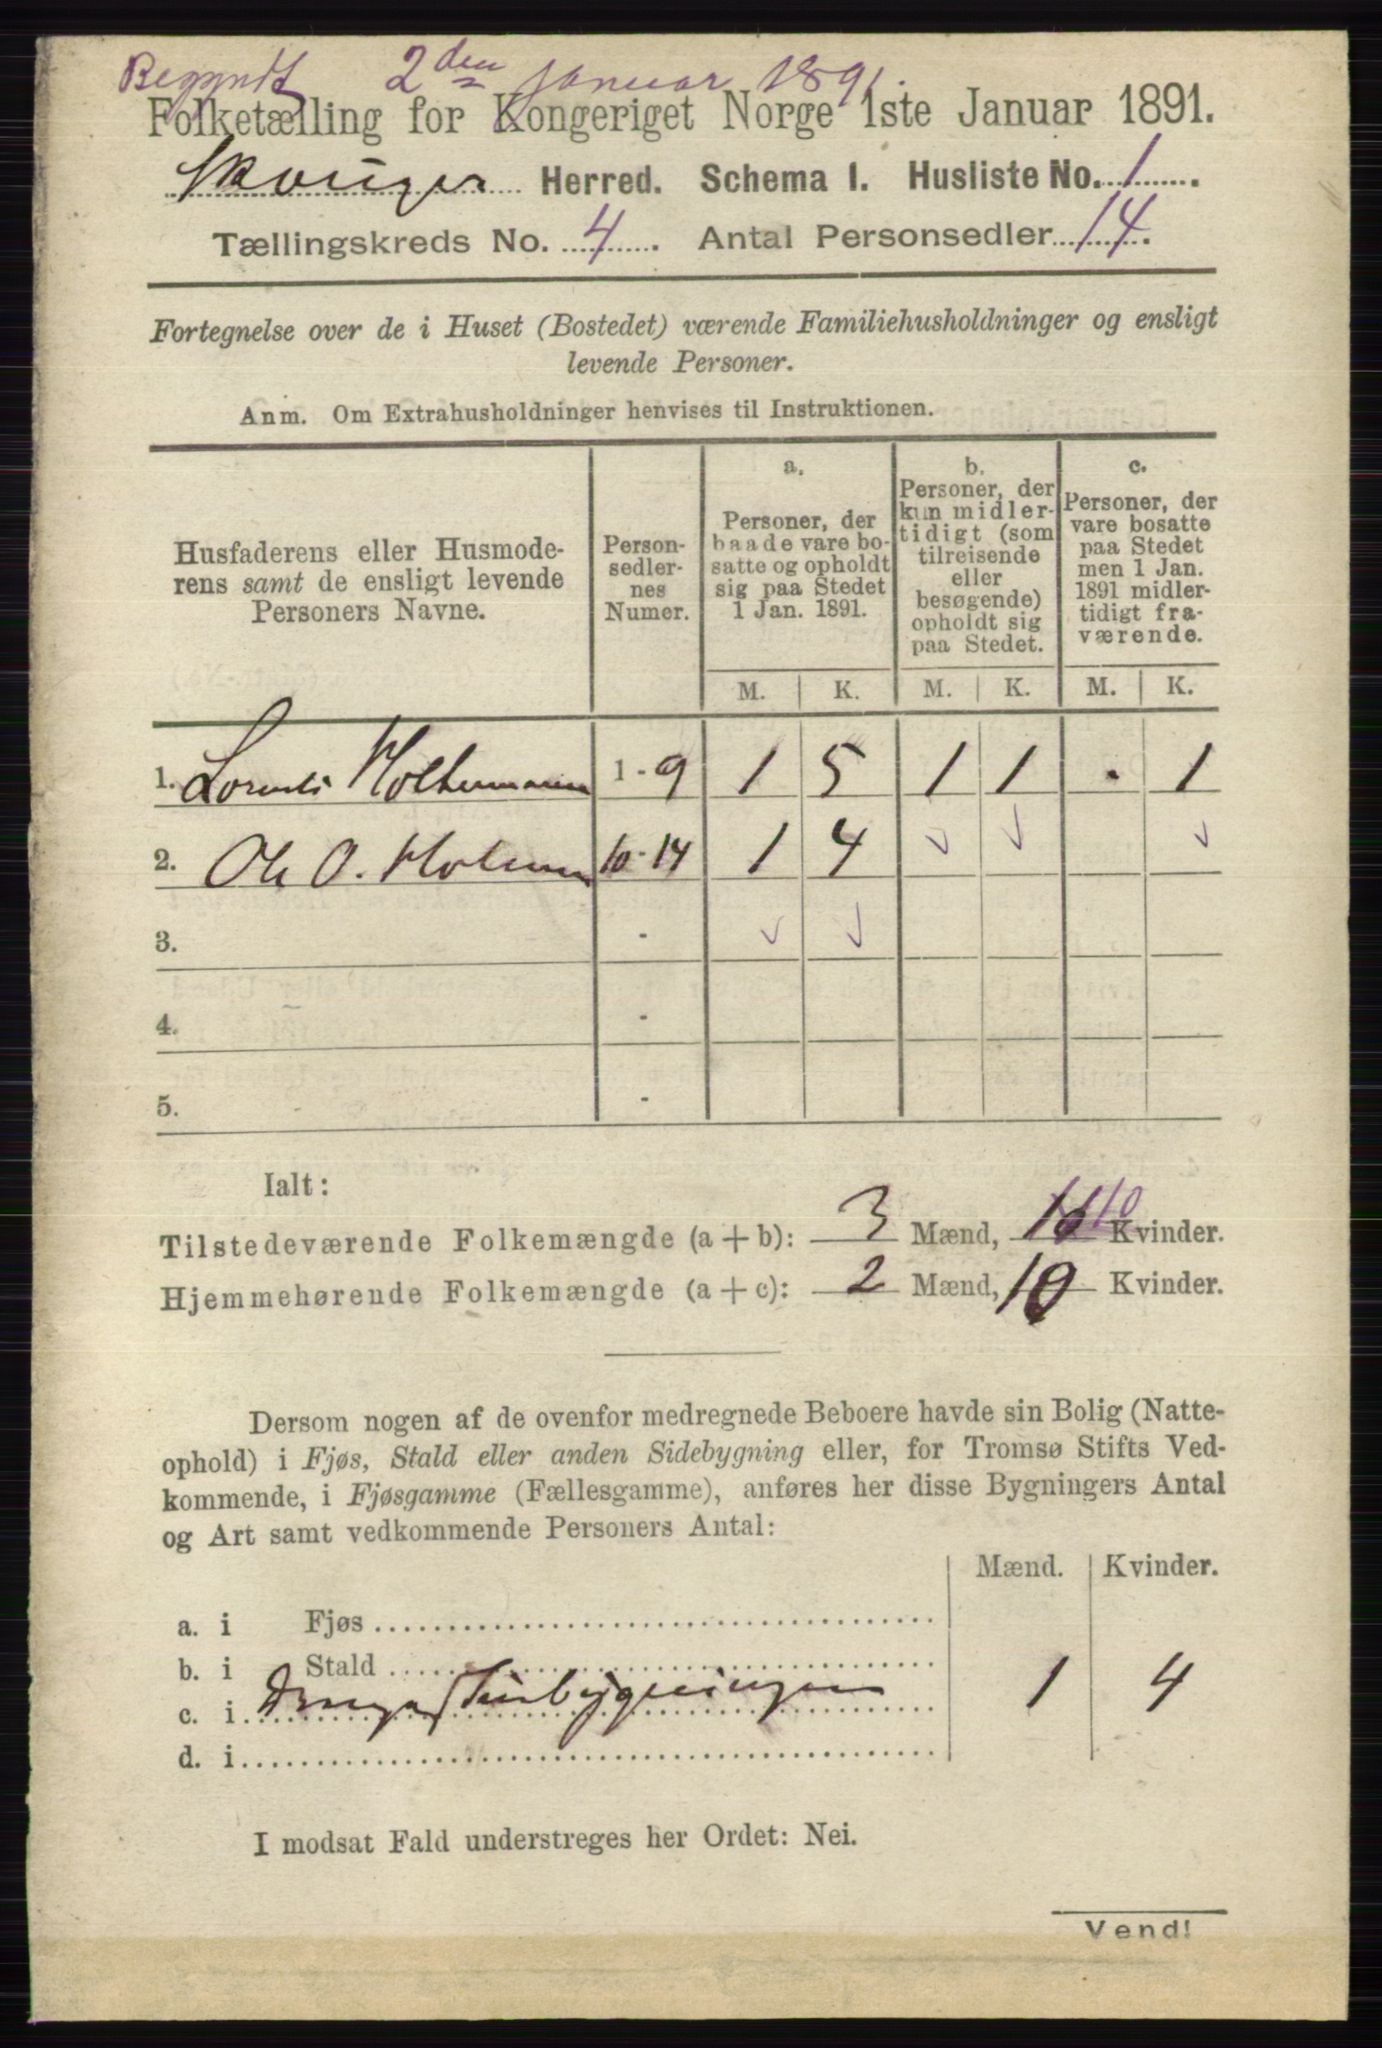 Begyndt 2den Januar 1891.
Folketælling for Kongeriget Norge 1ste Januar 1891.
Skouger Herred. Schema 1. Husliste No. 1.
Tællingskreds No. 4. Antal Personsedler 14.
Fortegnelse over de i Huset (Bostedet) værende Familiehusholdninger og ensligt
levende Personer.
Anm. Om Extrahusholdninger henvises til Instruktionen.
Husfaderens eller Husmode-
rens samt de ensligt levende
Personers Navne.
Person-
sedler-
nes
Numer.
a.
Personer, der
baade vare bo-
satte og opholdt
sig paa Stedet
1 Jan. 1891.
b.
Personer, der
kun midler-
tidigt (som
tilreisende
eller
besøgende)
opholdt sig
paa Stedet.
c.
Personer, der
vare bosatte
paa Stedet
men 1 Jan.
1891 midler-
tidigt fra-
værende.
M. K. M. K. M. K.
1. Lorents Holtermann 1-9 1 5 1 1 . 1
2. Ole O. 10-14 1 4
3. -
4. -
5. -
Ialt:
Tilstedeværende Folkemængde (a + b): 3 Mænd, 10 Kvinder.
Hjemmehørende Folkemængde (a + c): 2 Mænd, 10 Kvinder.
Dersom nogen af de ovenfor medregnede Beboere havde sin Bolig (Natte-
ophold) i Fjøs, Stald eller anden Sidebygning eller, for Tromsø Stifts Ved-
kommende, i Fjøsgamme (Fællesgamme), anføres her disse Bygningers Antal
og Art samt vedkommende Personers Antal:
Mænd. Kvinder.
a. i Fjøs
b. i Stald
c. i 1 4
d. i
I modsat Fald understreges her Ordet: Nei.
Vend!